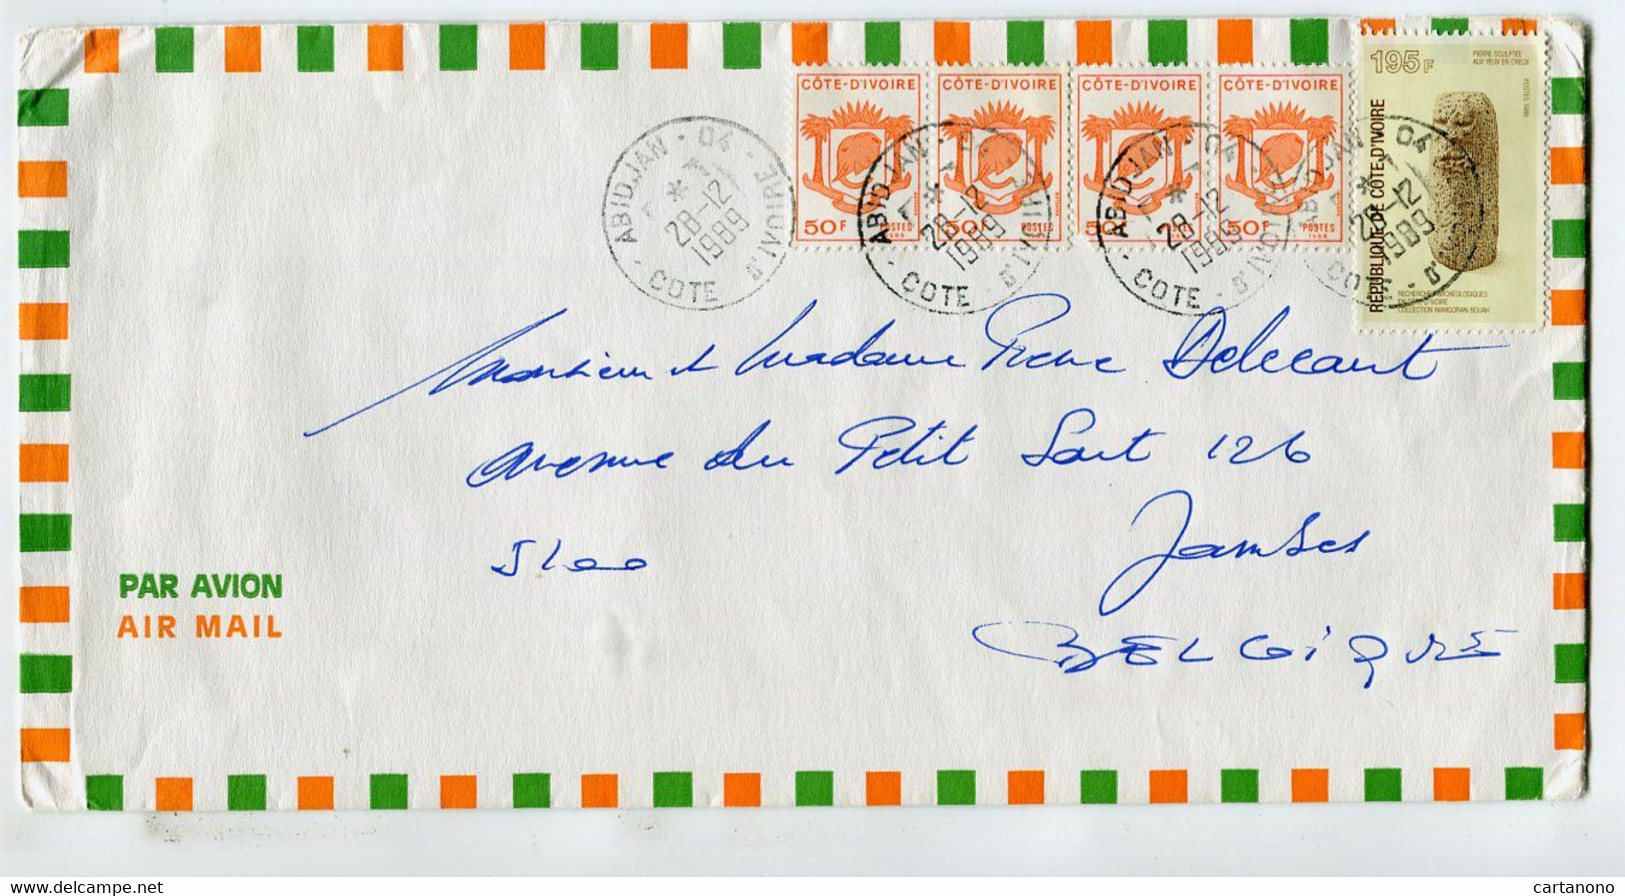 CÔTE-D'IVOIRE CÔTE-D'IVOIRE CÔTE-D'IVOIRE CÔTE-D'IVOIRE
50F POSTES 50F POSTES 50F POSTES 50F POSTES
195F
PIERRE SCULPTEE
AUX YEUX EN CREUX
POSTES 1989
REPUBLIQUE DE CÔTE D'IVOIRE
RECHERCHES ARCHEOLOGIQUES
EN CÔTE D'IVOIRE
COLLECTION NIANGORAN-BOUAH
ABIDJAN - 04 - COTE D'IVOIRE
28-12
1989
ABIDJAN - 04 - COTE D'IVOIRE
28-12
1989
ABIDJAN - 04 - COTE D'IVOIRE
28-12
1989
ABIDJAN - 04 - COTE D'
28-12
1989
Monsieur et Madame Pierre Delecaut
Avenue du Petit Sart 126
5100 Jambes
BELGIQUE
PAR AVION
AIR MAIL
www.delcampe.net
cartanono